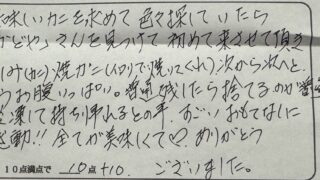 味しいカニを求めて色々探していたら
かどや」さんを見つけて初めて来させて頂き
焼ガニ(イロリで焼いてくれ)次から次へと
お腹いっぱい。普通残したら捨てるのが
して持ち帰れるとの事。すごいおもてなしに
動!! 全てが美味しくて♡ ありがとう
10点満点で 10点+10. ございました。